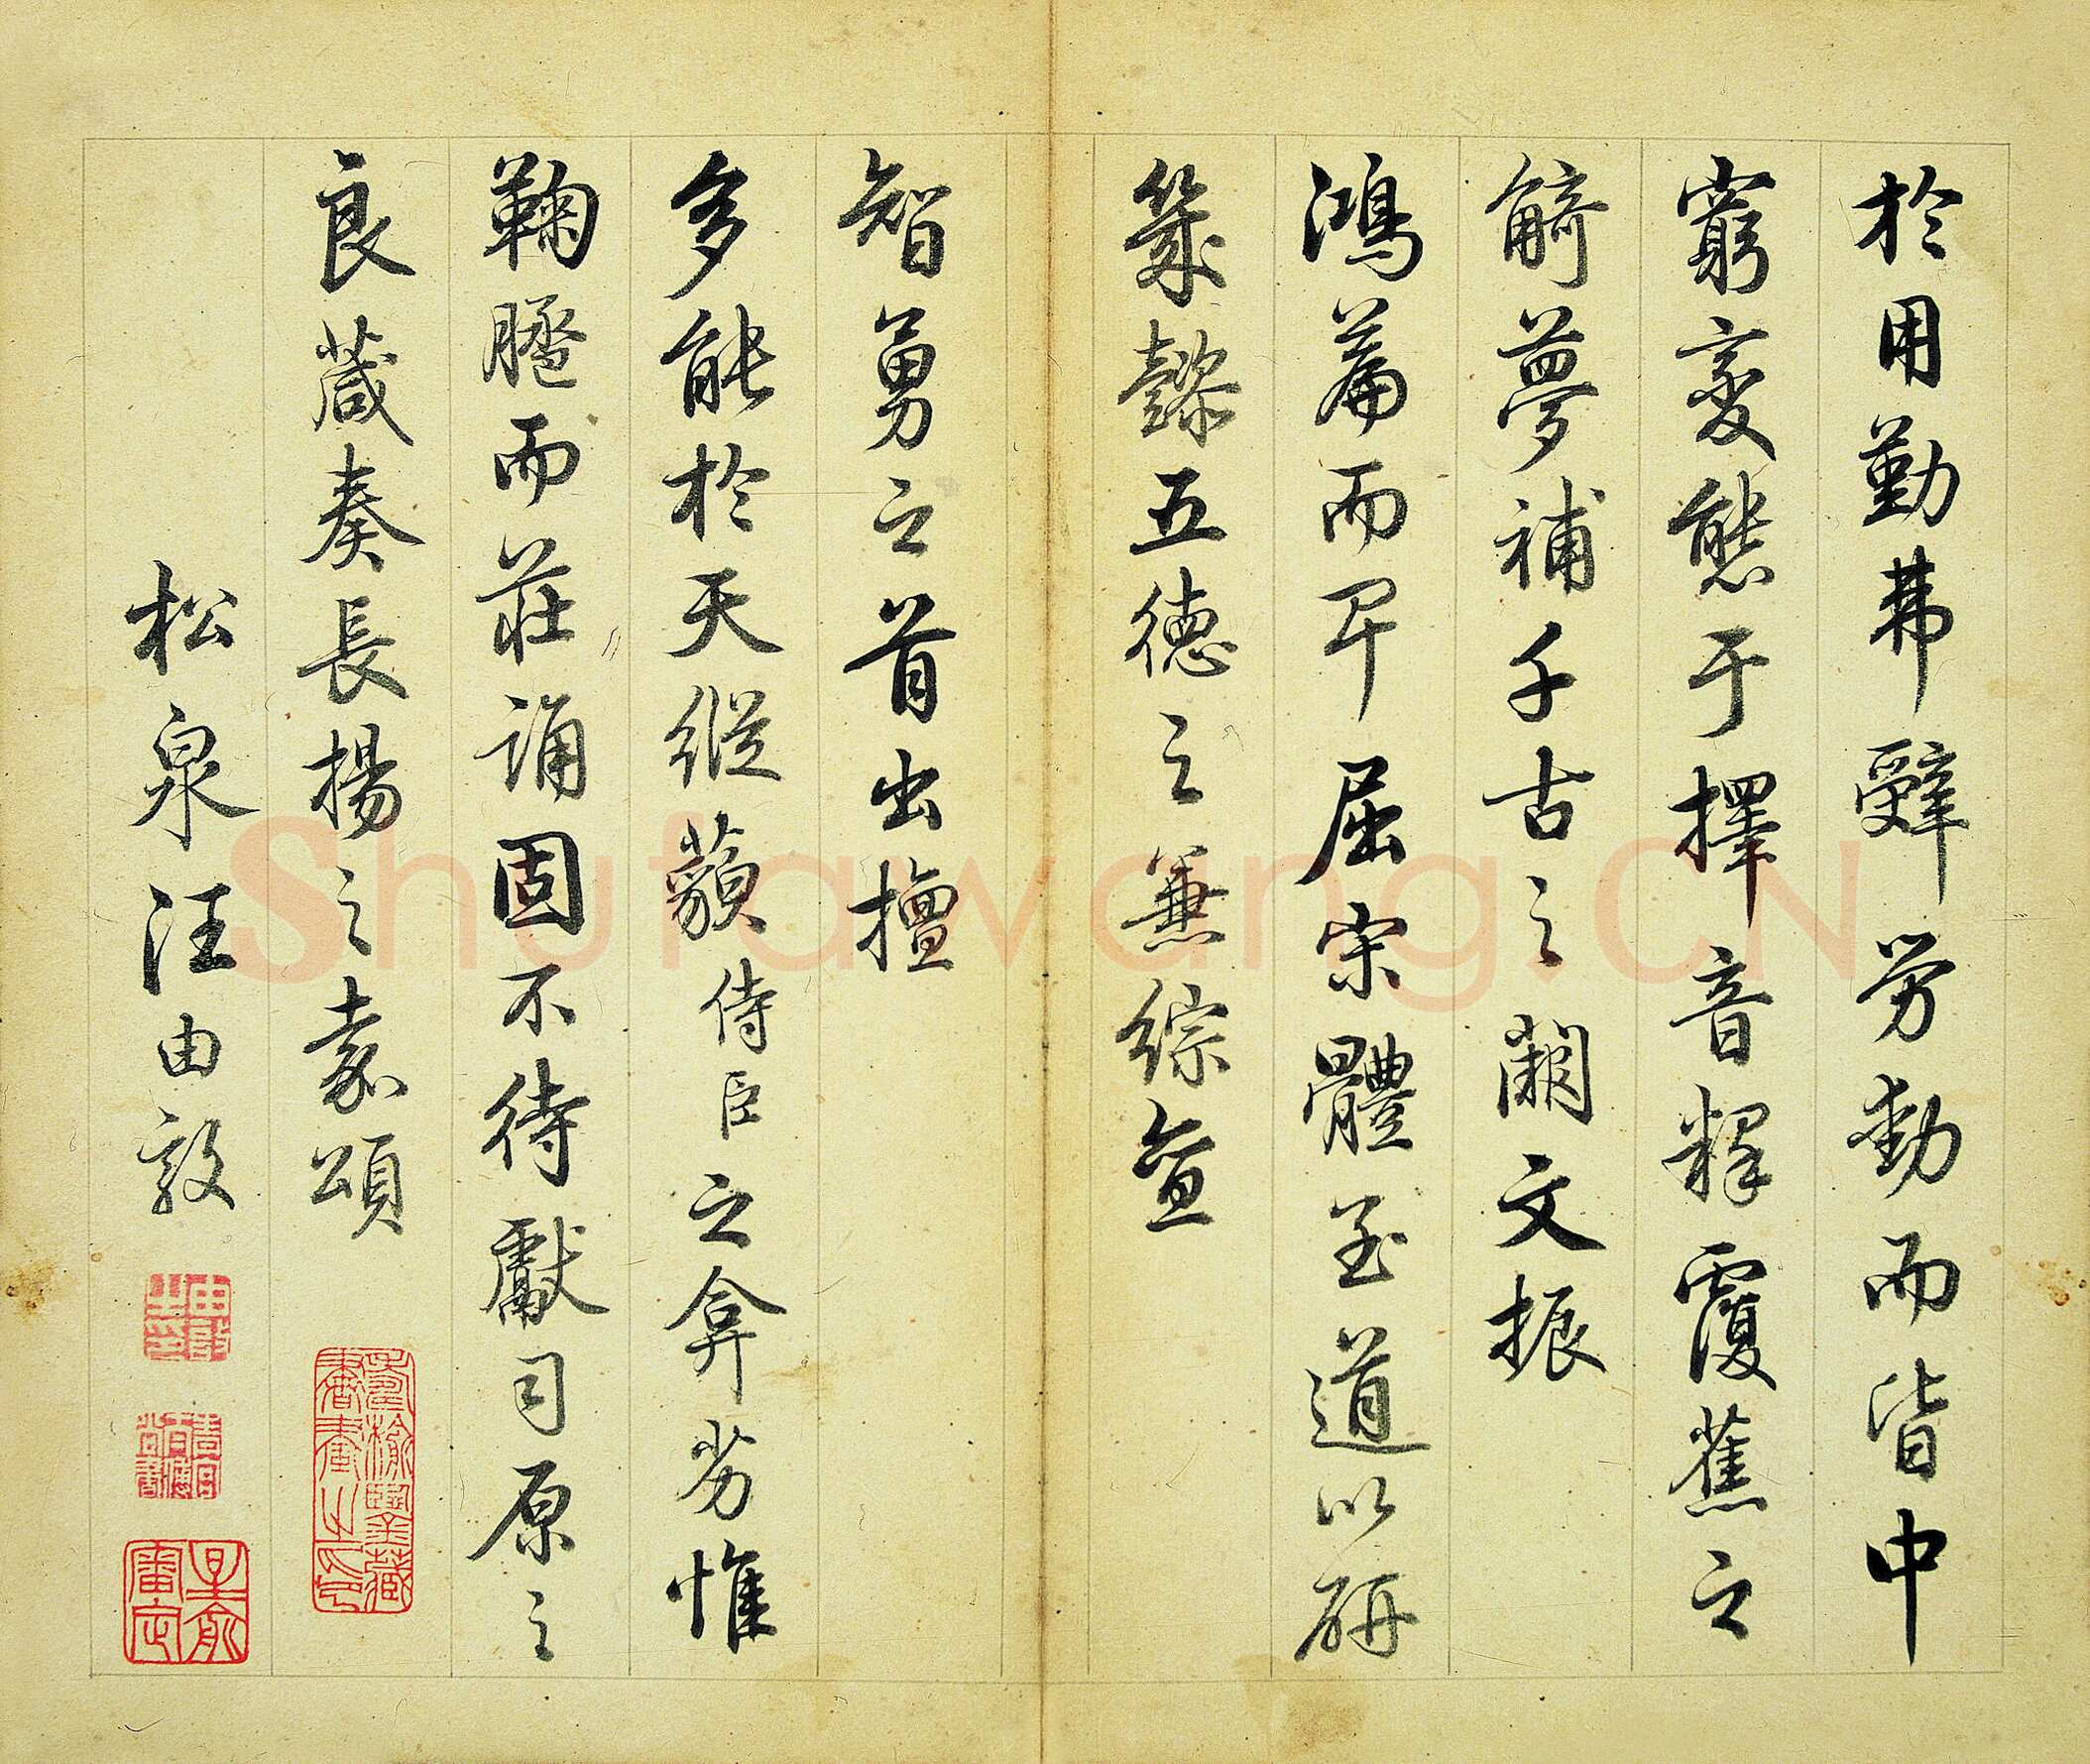 於用勤弗辭勞動而皆中
窮變態于擇音釋覆蕉之
觭夢補千古之闕文振
鴻篇而卑屈宋體至道以研
幾懿五德之兼綜亶
智勇之首出擅
多能於天縱藐侍臣之弇劣惟
鞠而莊誦固不待獻司原之
良箴奏長揚之頌
松泉汪由敦
由敦之印
Shufawang.CN